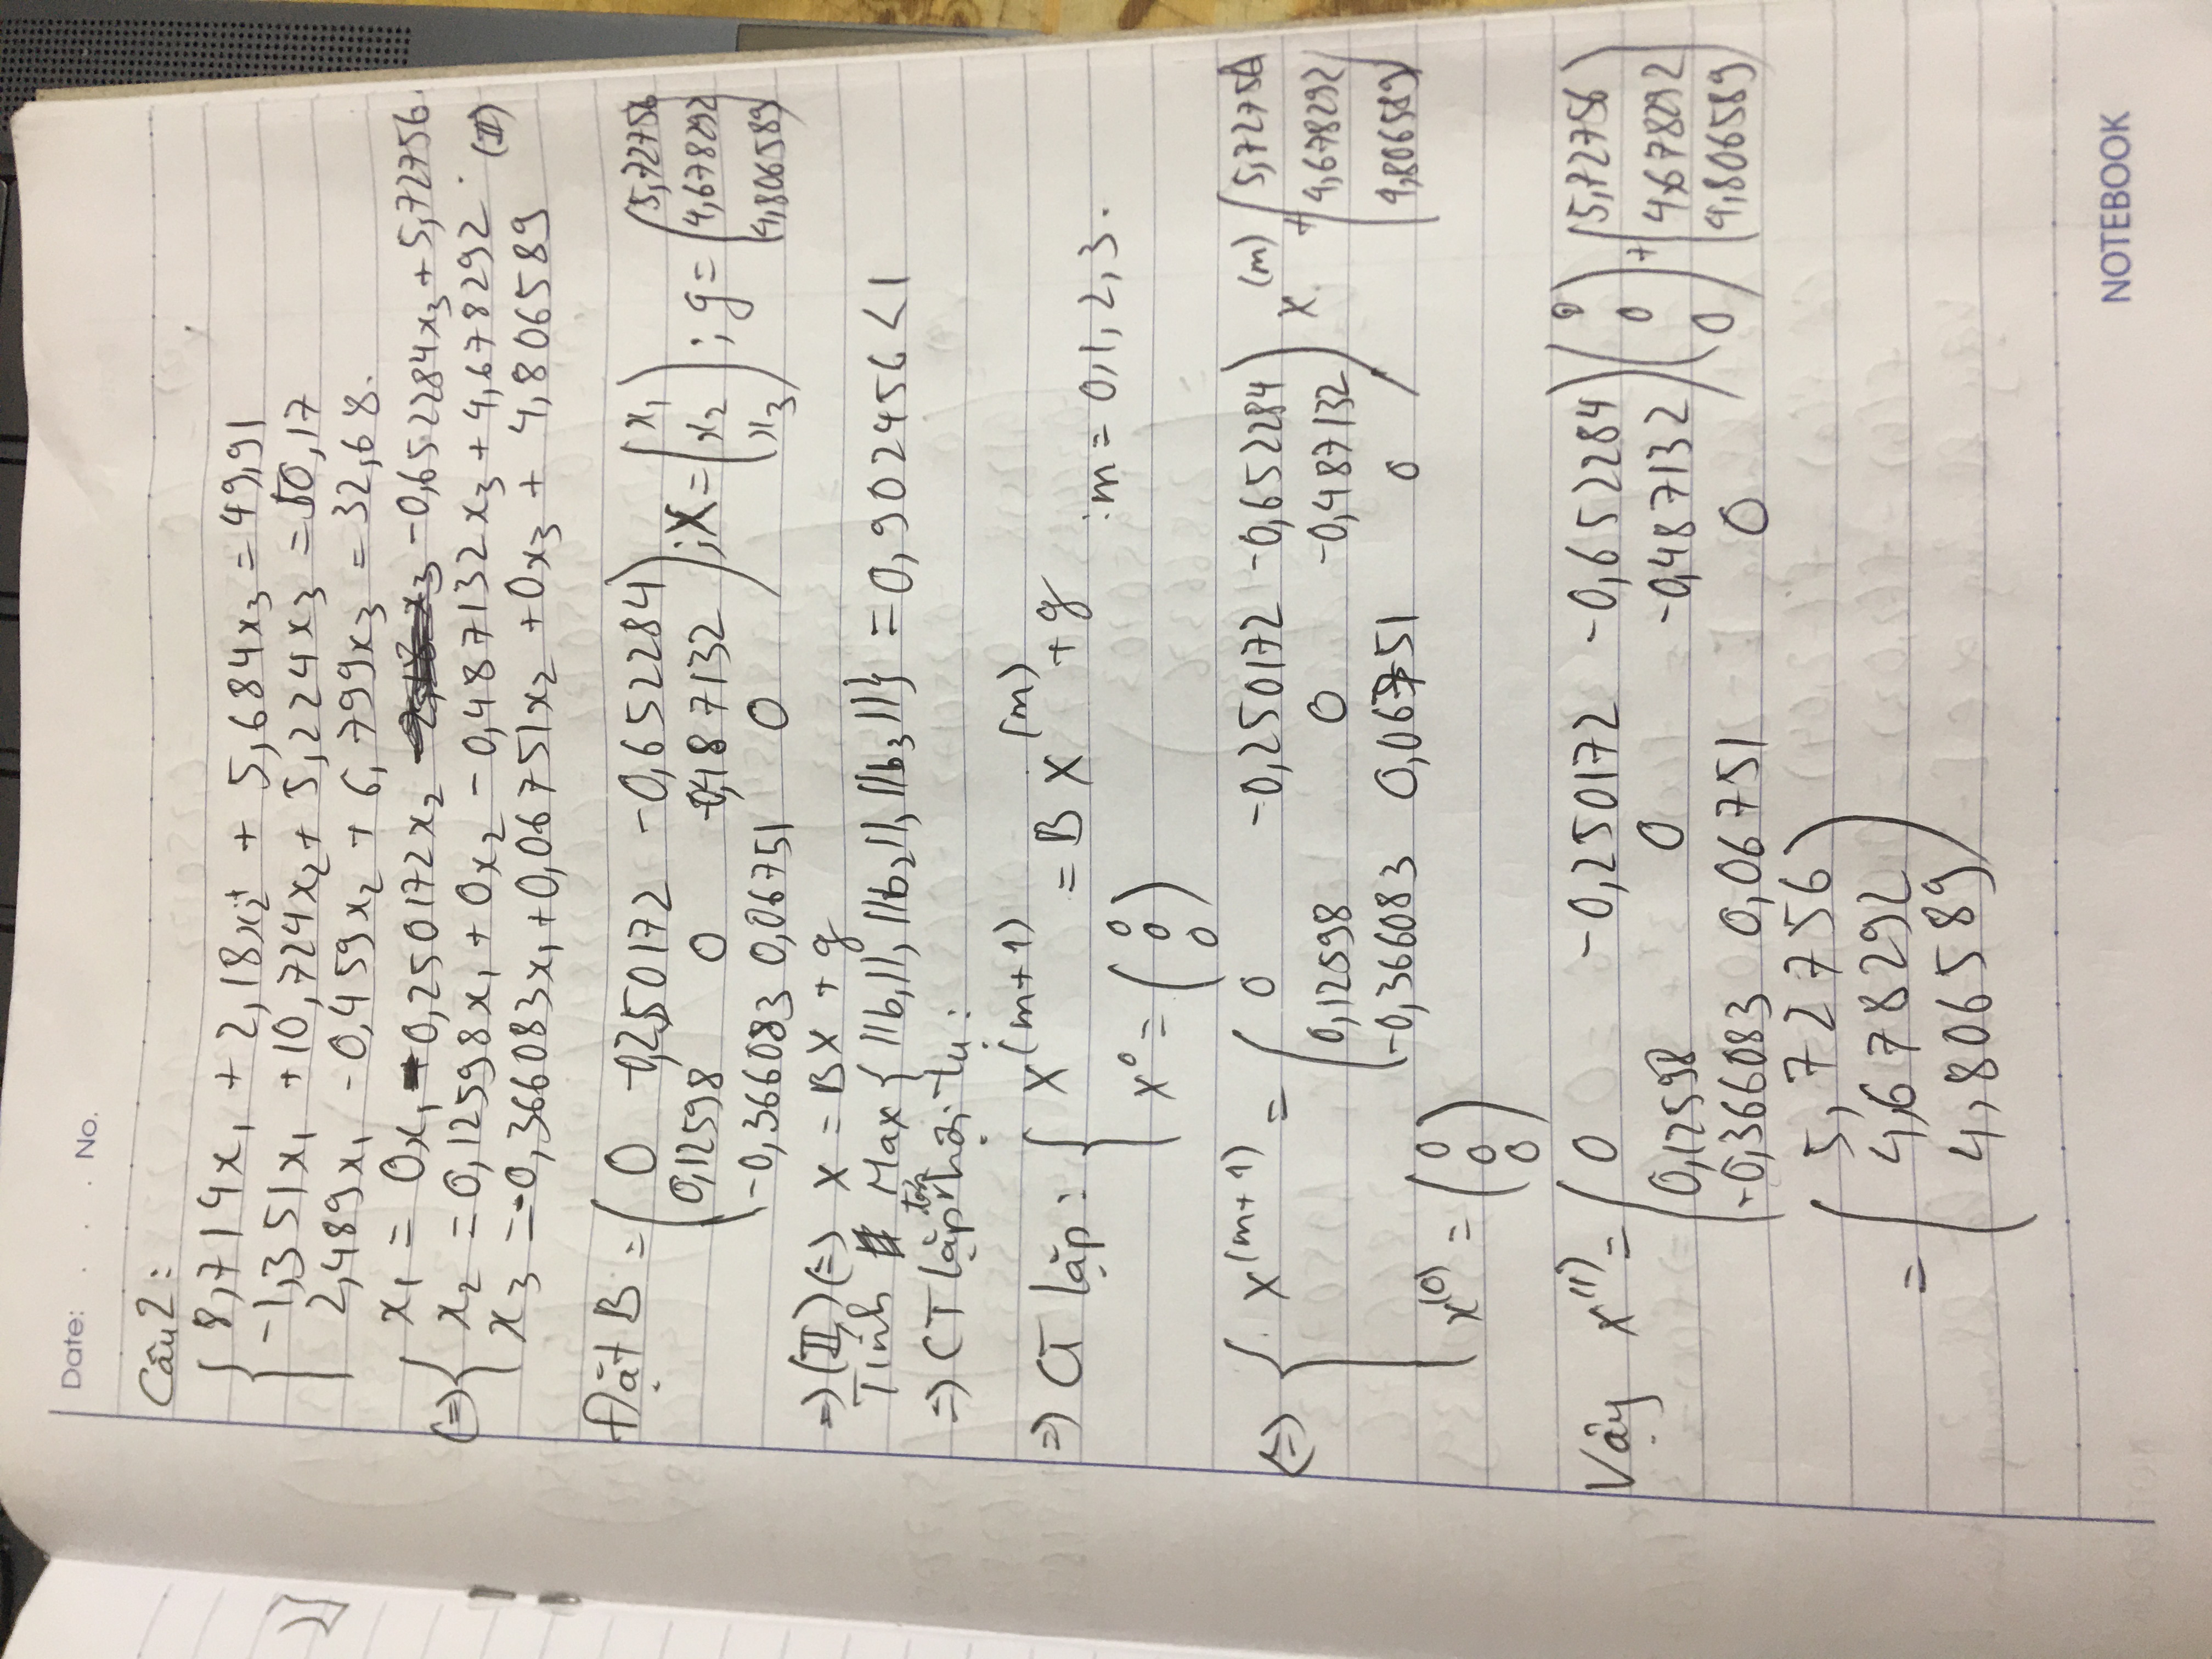 Date: . . . No.
Câu 2:
8,714x₁ + 2,18x₂ + 5,684x₃ = 49,91
-1,351x₁ + 10,724x₂ + 5,224x₃ = 50,17
2,489x₁ - 0,459x₂ + 6,799x₃ = 32,68.
x₁ = 0x₁ - 0,250172x₂ - 0,652284x₃ + 5,72756.
(=) x₂ = 0,12598x₁ + 0x₂ - 0,487132x₃ + 4,678292 (II)
x₃ = -0,366083x₁ + 0,06751x₂ + 0x₃ + 4,806589
Đặt B = ( 0 -0,250172 -0,652284 ; 0,12598 0 -0,487132 ; -0,366083 0,06751 0 ) ; X = ( x₁ ; x₂ ; x₃ ) ; g = ( 5,72756 ; 4,678292 ; 4,806589 )
=) (II) (=) X = BX + g
Tính Max { ||b₁||, ||b₂||, ||b₃|| } = 0,902456 < 1
=) CT lặp hội tụ :
=) CT lặp : X^(m+1) = B X^(m) + g : m = 0, 1, 2, 3.
X⁰ = ( 0 ; 0 ; 0 )
(=) X^(m+1) = ( 0 -0,250172 -0,652284 ; 0,12598 0 -0,487132 ; -0,366083 0,06751 0 ) X^(m) + ( 5,72756 ; 4,678292 ; 4,806589 )
X^(0) = ( 0 ; 0 ; 0 )
Vậy X^(1) = ( 0 -0,250172 -0,652284 ; 0,12598 0 -0,487132 ; -0,366083 0,06751 0 ) ( 0 ; 0 ; 0 ) + ( 5,72756 ; 4,678292 ; 4,806589 )
= ( 5,72756 ; 4,678292 ; 4,806589 )
NOTEBOOK